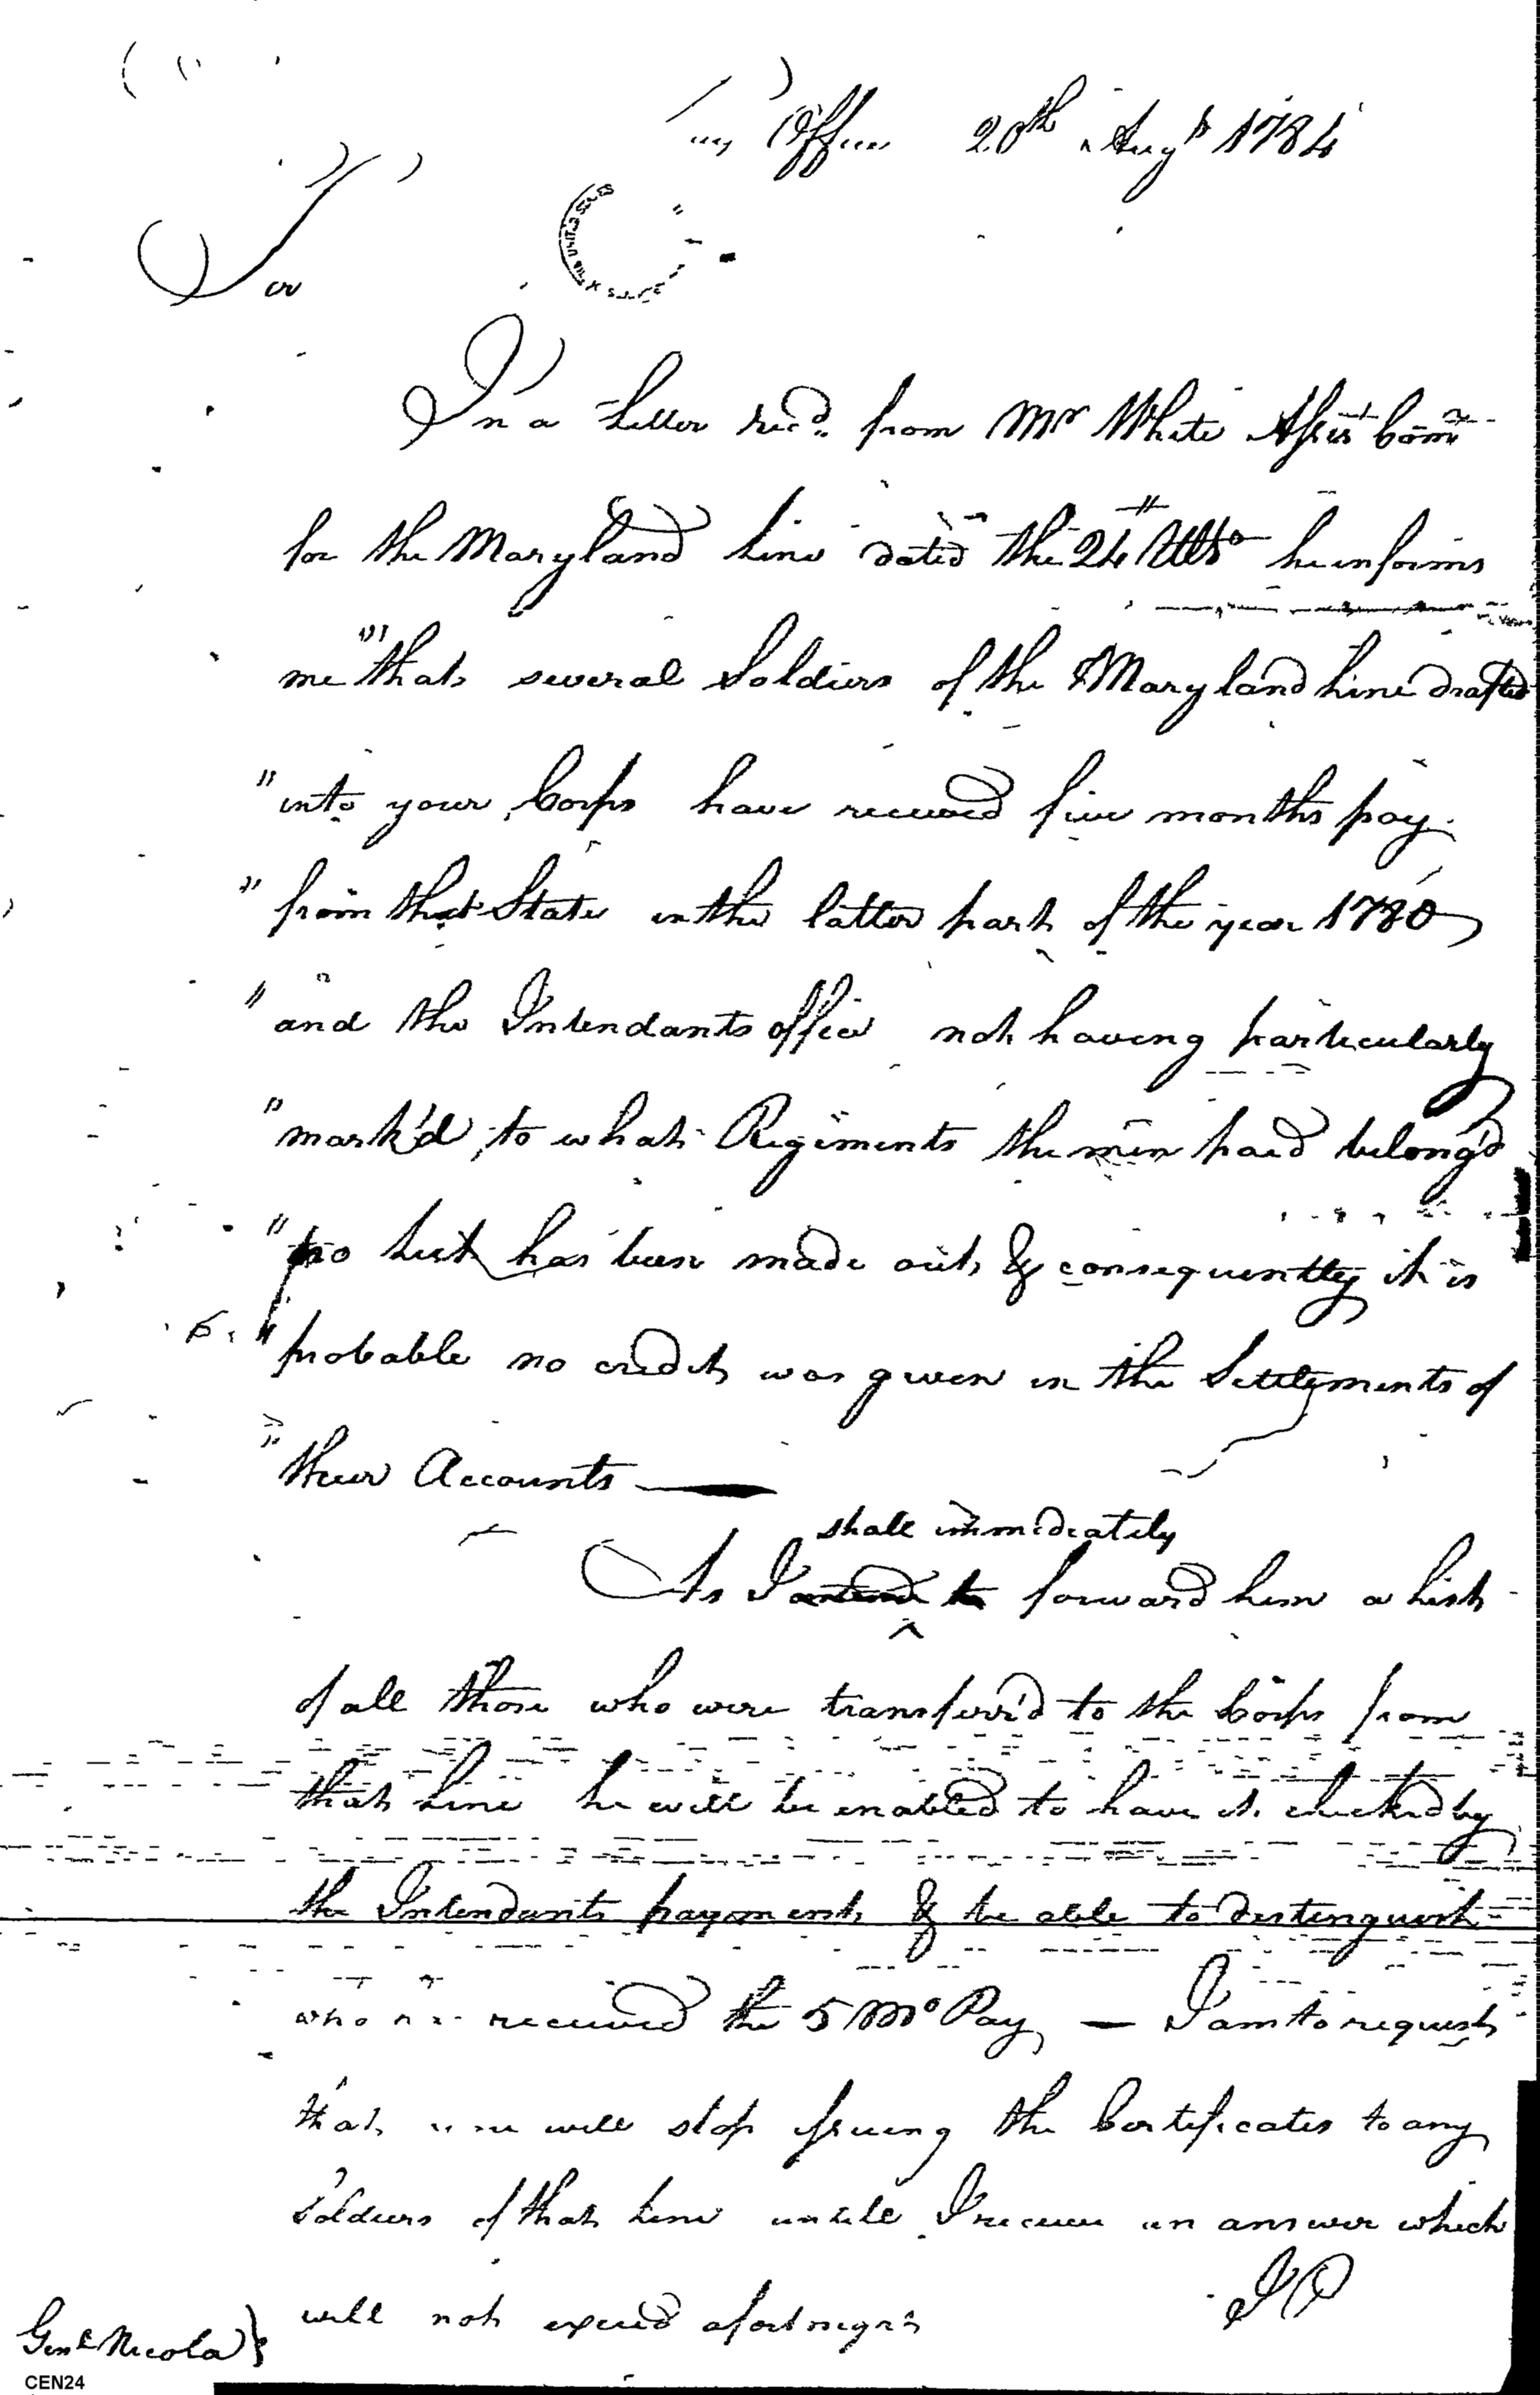 Office 20th Augt 1784
Sir
In a Letter recd. from Mr White Assist Comr
for the Maryland Line dated the 24 Ulto he informs
me "that several Soldiers of the Maryland Line drafted
"into your Corps have received five months pay
"from that State in the latter part of the year 1780
"and the Intendants office not having particularly
"mark'd to what Regiments the men paid belong'd
"no list has been made out & consequently it is
"probable no credit was given in the Settlements of
"their Accounts —
shall immediately
As I intend to forward him a list
of all those who were transferr'd to the Corps from
that Line he will be enabled to have it checked by
the Intendants payments & be able to distinguish
who received the 5 Mo Pay — I am to request
that will stop issuing the Certificates to any
Soldiers of that Line untill I receive an answer which
will not exceed a fortnight
JP
Genl Nicola }
CEN24